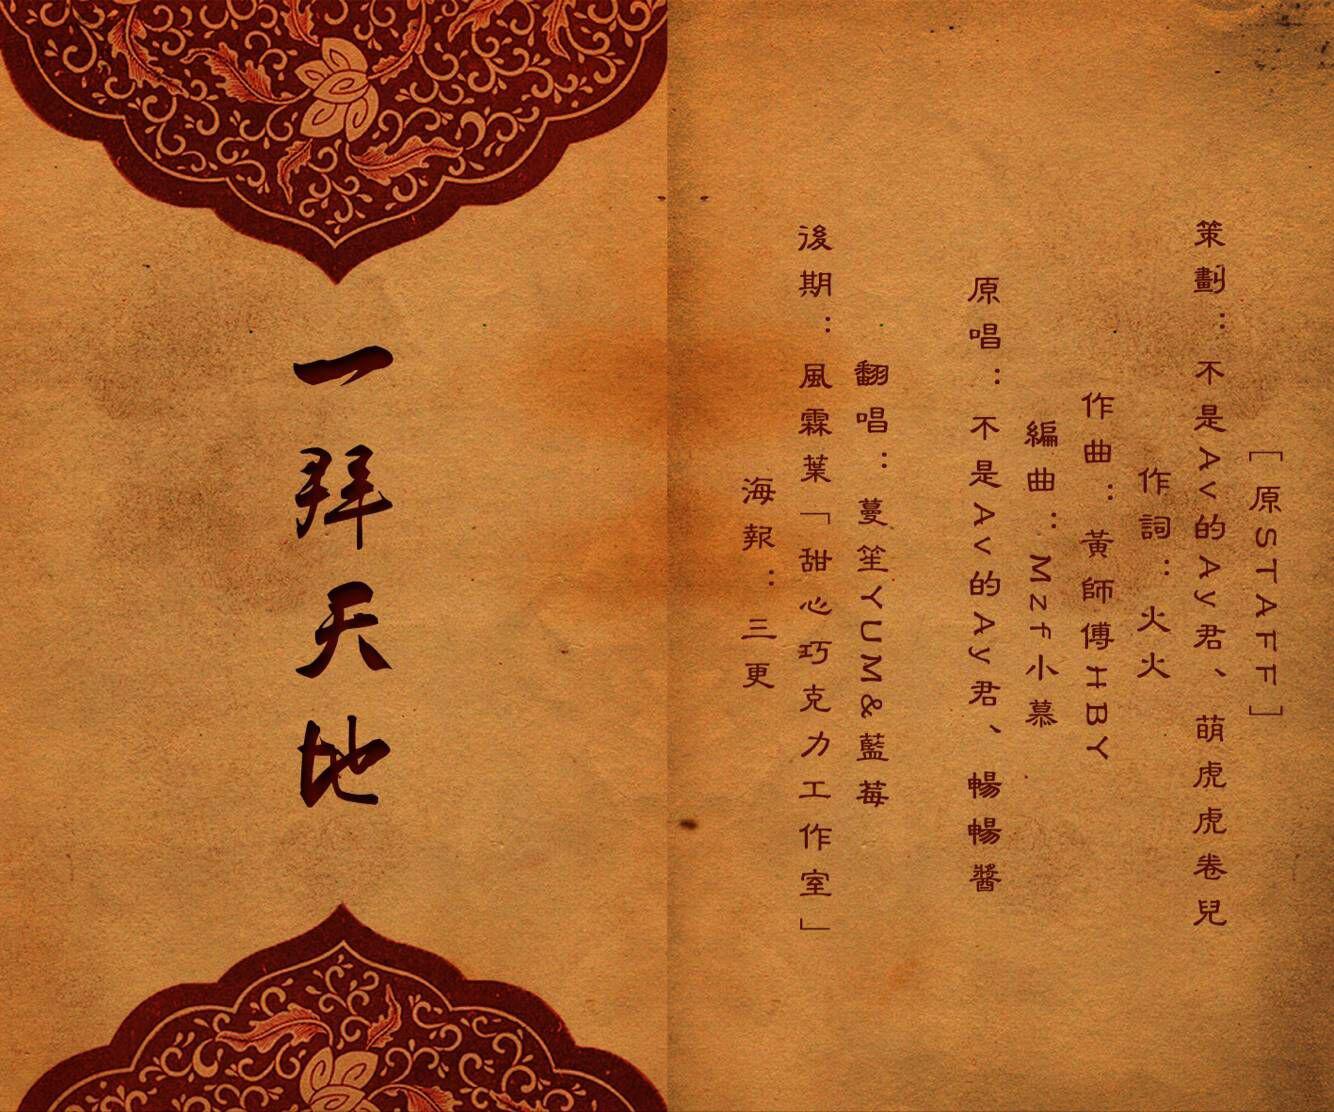 [原STAFF]
策劃：不是Av的Ay君、萌虎虎卷兒
作詞：火火
作曲：黃師傅HBY
編曲：Mzf小慕
原唱：不是Av的Ay君、暢暢醬
翻唱：蔓笙YUM&藍莓
後期：風霖葉「甜心巧克力工作室」
海報：三更
一拜天地